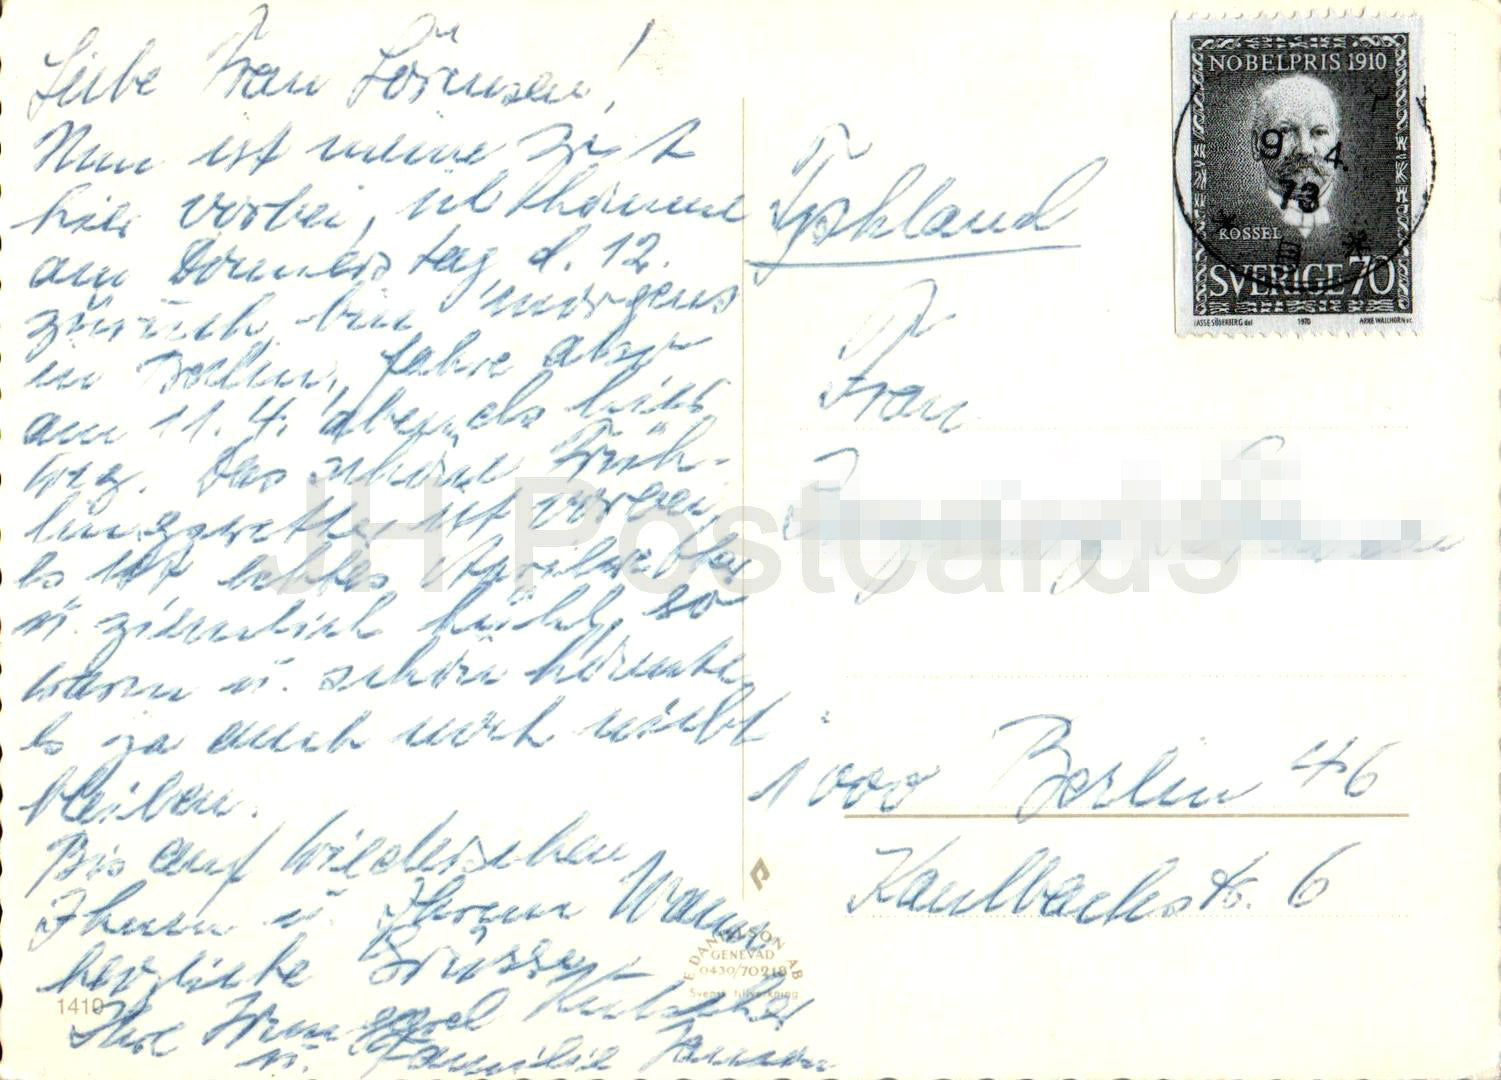 Liebe Frau Sörensen!
Nun ist meine Zeit
hier vorbei, ich komme
am Donnerstag d. 12.
zurück, bin morgens
in Berlin, fahre also
am 11. 4. abends hier
weg. Das schöne Früh-
lingswetter ist vorbei,
es ist echtes Aprilwetter
u. ziemlich kühl, so
warm u. schön konnte
es ja auch noch nicht
bleiben.
Bis auf Wiedersehen
Ihnen u. Ihrem Mann
herzliche Grüsse
Ihre Irmgard
u. Familie
1419
NOBELPRIS 1910
9 4.
73
SVERIGE 70
LASSE SÖDERBERG del 1970 ARNE WALLHORN sc
Tyskland
Frau
1000 Berlin 46
Kaulbachstr. 6
GENEVAD
0430/70218
Svensk tillverkning
JH Postcards